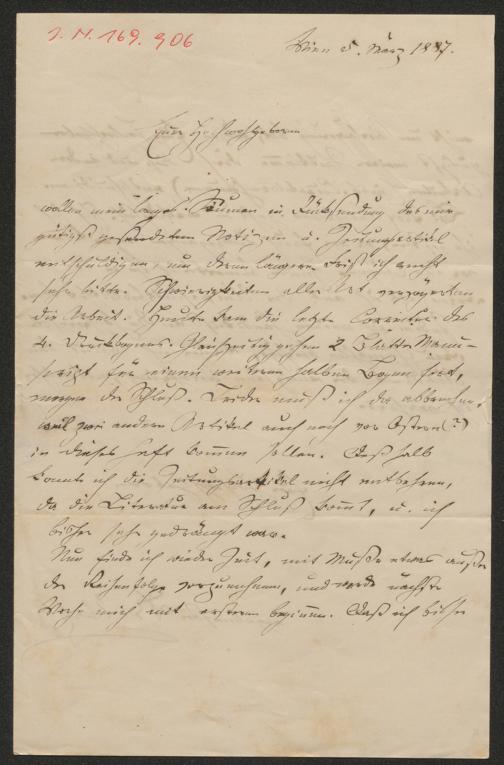 J. N. 169.906
Wien 5. März 1887.
Euer Hochwohlgeboren
wollen mein langes Säumen in Rücksendung der mir
gütigst gesendeten Notizen u. Zeitungsartikel
entschuldigen, um deren längere Frist ich recht
sehr bitte. Schwierigkeiten aller Art verzögerten
die Arbeit. Heute kam die letzte Correctur des
4. Druckbogens. Gleichzeitig gehen 2 Blätter Manu-
script für einen weiteren halben Bogen fort,
morgen der Schluß. Leider muß ich da abbrechen,
weil zwei andere Artikel auch noch vor Ostern (?)
in dieses Heft kommen sollen. Deßhalb
konnte ich die Zeitungsartikel nicht entbehren,
da die Literatur am Schluß kommt, u. ich
bisher sehr gedrängt war.
Nun finde ich wieder Zeit, mit Muße etwas außer
der Reihenfolge vorzunehmen, und werde nächste
Woche mich mit ersterem beginnen. Daß ich bisher